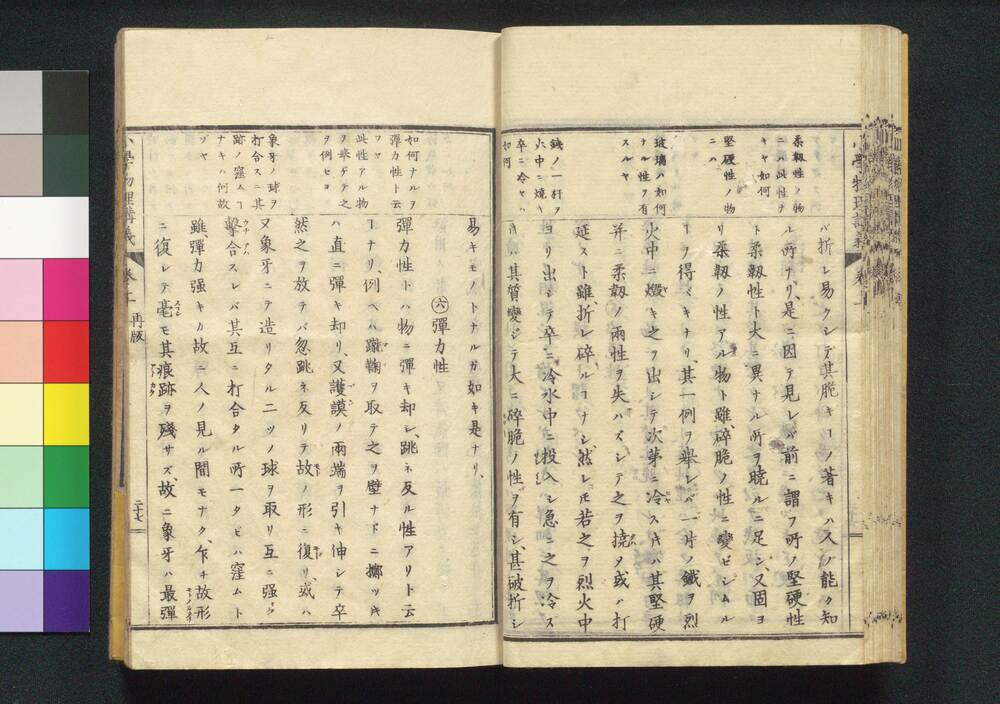 柔軟性ノ物
ニハ此性ナ
キヤ如何
堅硬性ノ物
ニハ
玻璃ハ如何
ナル性ヲ有
スルヤ
鐵ノ一杆ヲ
火中ニ燒キ
卒ニ冷セハ
如何
バ折レ易クシテ其脆キヿノ著キハ人ノ能ク知
ル所ナリ、是ニ因テ見レバ前ニ謂フ所ノ堅硬性
ト柔靱性ト大ニ異ナル所ヲ曉ルニ足ン、又固ヨ
リ柔靱ノ性アル物ト雖、碎脆ノ性ニ變ゼシムル
ヿヲ得ベキナリ、其一例ヲ擧レバ一片ノ鐵ヲ烈
火中ニ燬キ之ヲ出シテ次第ニ冷スキハ其堅硬
并ニ柔靱ノ兩性ヲ失ハズシテ之ヲ撓タ或ハ打
延スト雖、折レ碎ルヿナシ、然レモ若之ヲ烈火中
ヨリ出シテ卒ニ冷水中ニ投入シ急ニ之ヲ冷ス
ハ其質變ジテ大ニ碎脆ノ性ヲ有シ、甚破折シ
小學物理講義 卷二
如何ナルヲ
彈力性ト云
フヤ
此性アル物
ヲ擧ゲテ之
ヲ例セヨ
象牙ノ球ヲ
打合スニ其
跡ノ窪ムヿ
ナキハ何故
ゾヤ
易キモノトナルガ如キ是ナリ、
㊅彈力性
彈力性トハ物ニ彈キ却シ、跳ネ反ル性アリト云
ヿナリ、例ヘハ蹴鞠ヲ取テ之ヲ壁ナドニ擲ツキ
ハ直ニ彈キ却リ、又護謨ノ兩端ヲ引キ伸シテ卒
然之ヲ放テバ忽跳ネ反リテ故ノ形ニ復リ或ハ
又象牙ニテ造リタル二ツノ球ヲ取リ互ニ强ク
擊合スレバ其互ニ打合タル所一タビハ窪ムト
雖彈力强キカ故ニ人ノ見ル間モナク、乍チ故形
ニ復シテ毫モ其痕跡ヲ殘サズ、故ニ象牙ハ最彈
小學物理講義 卷二 再版 二十七